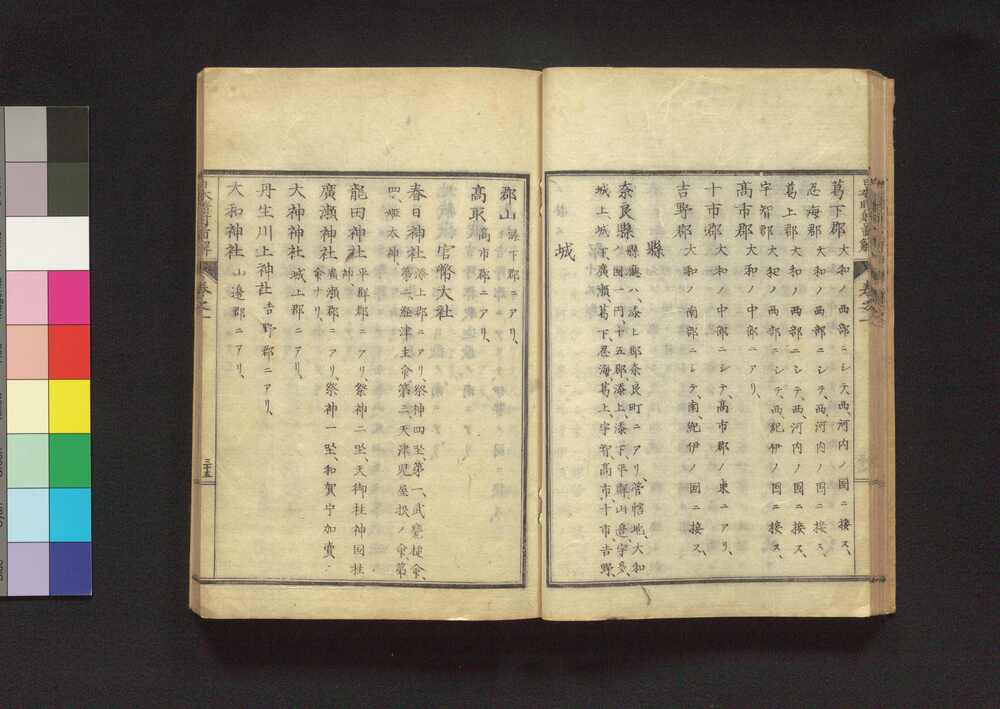 葛下郡 大和ノ西部ニシテ、西、河内ノ國ニ接ス、
忍海郡 大和ノ西部ニシテ、西、河内ノ國ニ接ス、
葛上郡 大和ノ西部ニシテ、西、河内ノ國ニ接ス、
宇智郡 大和ノ西部ニシテ、西、紀伊ノ國ニ接ス、
高市郡 大和ノ中部ニアリ、
十市郡 大和ノ中部ニシテ、高市郡ノ東ニアリ、
吉野郡 大和ノ南部ニシテ、南、紀伊ノ國ニ接ス、
縣
奈良縣 縣廳ハ、添上郡奈良町ニアリ、管轄地、大和
ノ國一円、十五郡添上、添下、平群、山邊、宇多、
城上、城下、廣瀬、葛下、忍海、葛上、宇智、高市、十市、吉野、
城
郡山 添下郡ニアリ、
高取 高市郡ニアリ、
官幣大社
春日神社 添上郡ニアリ、祭神四坐、第一、武甕槌命、
第二、經津主命、第三、天津児屋根ノ命、第
四、姫太神、
龍田神社 平群郡ニアリ、祭神二坐、天御柱神国柱
神、
廣瀬神社 廣瀬郡ニアリ、祭神一坐、和賀宇加賣
命ナリ、
大神神社 城上郡ニアリ、
丹生川上神社 吉野郡ニアリ、
大和神社 山邊郡ニアリ、
卷之一
三十五